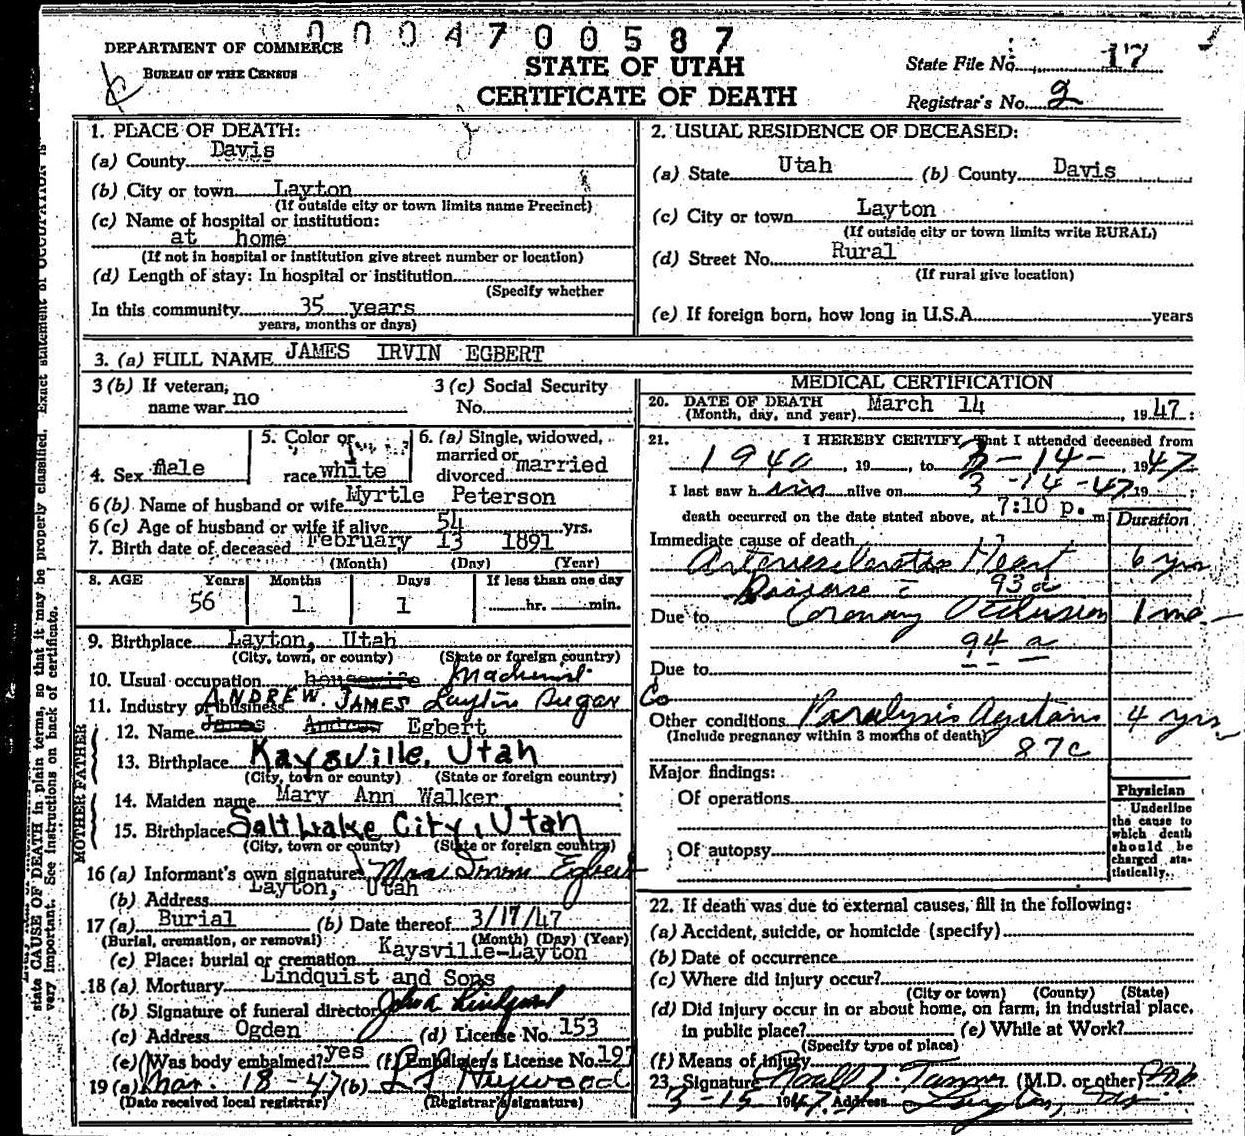 0004700587
DEPARTMENT OF COMMERCE
BUREAU OF THE CENSUS
STATE OF UTAH
CERTIFICATE OF DEATH
State File No. 17
Registrar's No. 2
1. PLACE OF DEATH:
(a) County Davis
(b) City or town Layton
(If outside city or town limits name Precinct)
(c) Name of hospital or institution:
at home
(If not in hospital or institution give street number or location)
(d) Length of stay: In hospital or institution
(Specify whether
In this community 35 years
years, months or days)
2. USUAL RESIDENCE OF DECEASED:
(a) State Utah (b) County Davis
(c) City or town Layton
(If outside city or town limits write RURAL)
(d) Street No. Rural
(If rural give location)
(e) If foreign born, how long in U.S.A. years
3. (a) FULL NAME JAMES IRVIN EGBERT
3 (b) If veteran, name war no
3 (c) Social Security No.
4. Sex male
5. Color or race white
6. (a) Single, widowed, married or divorced married
6 (b) Name of husband or wife Myrtle Peterson
6 (c) Age of husband or wife if alive 54 yrs.
7. Birth date of deceased February 13 1891
(Month) (Day) (Year)
8. AGE Years Months Days If less than one day
56 1 1 hr. min.
9. Birthplace Layton, Utah
(City, town, or county) (State or foreign country)
10. Usual occupation housewife Machinist
11. Industry or business Layton Sugar Co
ANDREW JAMES
12. Name James Andrew Egbert
13. Birthplace Kaysville, Utah
(City, town or county) (State or foreign country)
14. Maiden name Mary Ann Walker
15. Birthplace Salt Lake City, Utah
(City, town or county) (State or foreign country)
FATHER
MOTHER
16 (a) Informant's own signature Mrs Irvin Egbert
(b) Address Layton, Utah
17 (a) Burial (b) Date thereof 3/17/47
(Burial, cremation, or removal) (Month) (Day) (Year)
(c) Place: burial or cremation Kaysville-Layton
18 (a) Mortuary Lindquist and Sons
(b) Signature of funeral director John A Lindquist
(c) Address Ogden (d) License No. 153
(e) Was body embalmed? yes (f) Embalmer's License No. 197
19 (a) Mar. 18-47 (b) L F Heywood
(Date received local registrar) (Registrar's signature)
MEDICAL CERTIFICATION
20. DATE OF DEATH March 14, 1947
(Month, day, and year)
21. I HEREBY CERTIFY, That I attended deceased from
1940, 19 , to 3-14-, 1947
I last saw him alive on 3-14-47 19 ;
death occurred on the date stated above, at 7:10 p. m.
Duration
Immediate cause of death
Arteriosclerotic Heart 6 yrs
Disease c 93d
Due to Coronary Occlusion 1 mo.
94 a
Due to
Other conditions Paralysis Agitans 4 yrs
(Include pregnancy within 3 months of death)
87c
Major findings:
Of operations
Of autopsy
Physician
Underline the cause to which death should be charged statistically.
22. If death was due to external causes, fill in the following:
(a) Accident, suicide, or homicide (specify)
(b) Date of occurrence
(c) Where did injury occur?
(City or town) (County) (State)
(d) Did injury occur in or about home, on farm, in industrial place,
in public place? (e) While at Work?
(Specify type of place)
(f) Means of Injury
23. Signature Noall Z. Tanner (M.D. or other) M.D.
3-15 1947 Address Layton, Ut
state CAUSE OF DEATH in plain terms, so that it may be properly classified. Exact statement of OCCUPATION is
very important. See instructions on back of certificate.